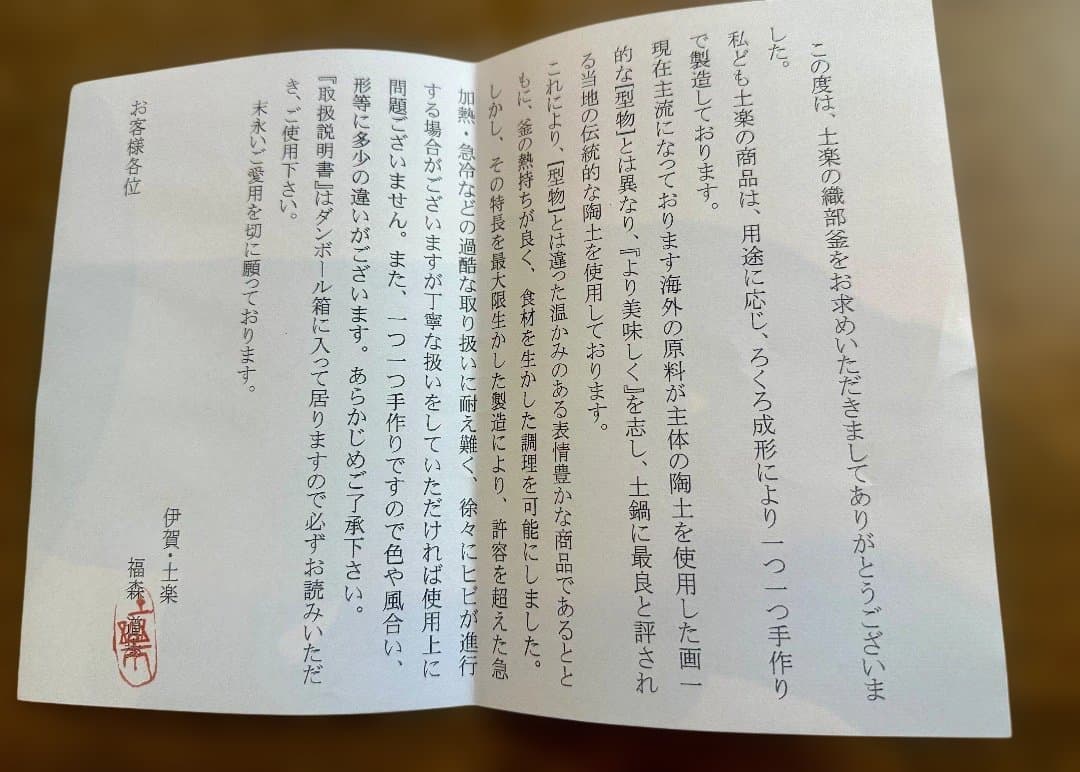 この度は、土楽の織部釜をお求めいただきましてありがとうございま
した。
私ども土楽の商品は、用途に応じ、ろくろ成形により一つ一つ手作り
で製造しております。
現在主流になっております海外の原料が主体の陶土を使用した画一
的な[型物]とは異なり、『より美味しく』を志し、土鍋に最良と評され
る当地の伝統的な陶土を使用しております。
これにより、[型物]とは違った温かみのある表情豊かな商品であるとと
もに、釜の熱持ちが良く、食材を生かした調理を可能にしました。
しかし、その特長を最大限生かした製造により、許容を超えた急
加熱・急冷などの過酷な取り扱いに耐え難く、徐々にヒビが進行
する場合がございますが丁寧な扱いをしていただければ使用上に
問題ございません。また、一つ一つ手作りですので色や風合い、
形等に多少の違いがございます。あらかじめご了承下さい。
『取扱説明書』はダンボール箱に入って居りますので必ずお読みいただ
き、ご使用下さい。
末永いご愛用を切に願っております。
伊賀・土楽
福森
お客様各位